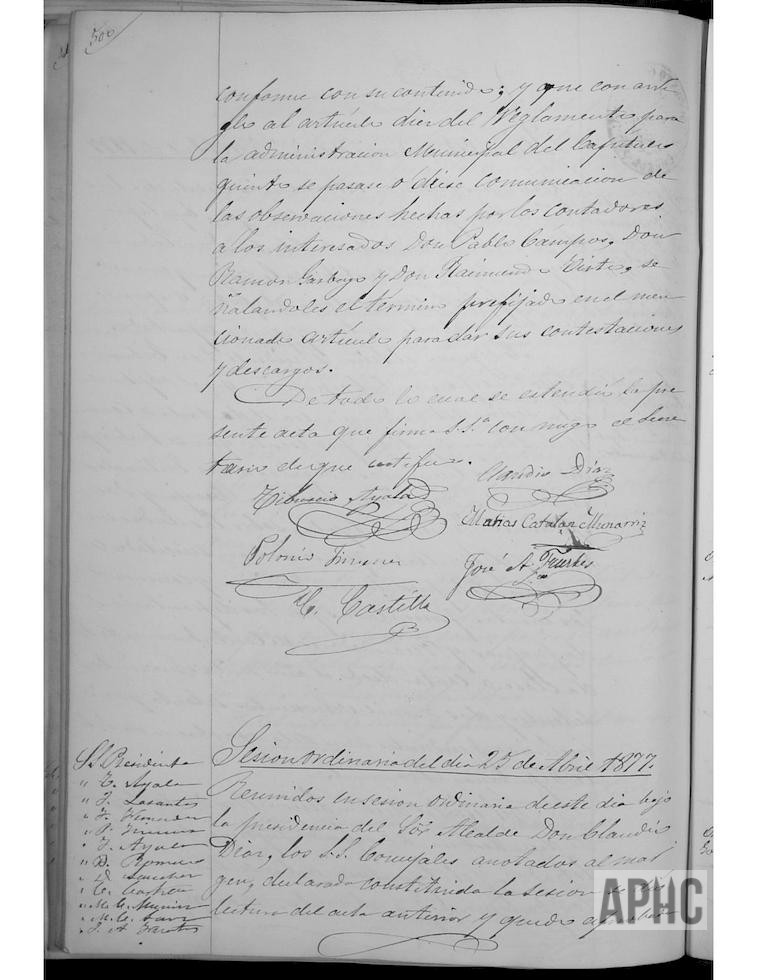 500
conforme con su contenido; y que con arre
glo al artículo diez del Reglamento para
la administracion Municipal del Capitulo
quinto se pasase ó diese comunicacion de
las observaciones hechas por los contadores
á los interesados Don Pablo Campos, Don
Ramon Garbayo y Don Raimundo Virto, se
ñalandoles el termino prefijado en el men
cionado artículo para dar sus contestaciones
y descargos.
De todo lo cual se estendió la pre
sente acta que firma S.S.ª con migo el Secre
tario de que certifico.
Claudio Díaz
Tiburcio Ayala
Matias Catalan Munarriz
Polonio Jimenez
José A. Fuertes
C. Castilla
Sesion ordinaria del dia 25 de Abril 1877.
S.S. Presidente
" T. Ayala
" J. Lasantas
" P. Jimenez
" J. Ayala
" D. Romero
" D. Sanchez
Reunidos en sesion ordinaria de este dia bajo
la presidencia del Sor Alcalde Don Claudio
Diaz, los S.S. Concejales anotados al mar
gen, declarada constituida la sesion se dió
lectura del acta anterior y quedó aprobada
APHC